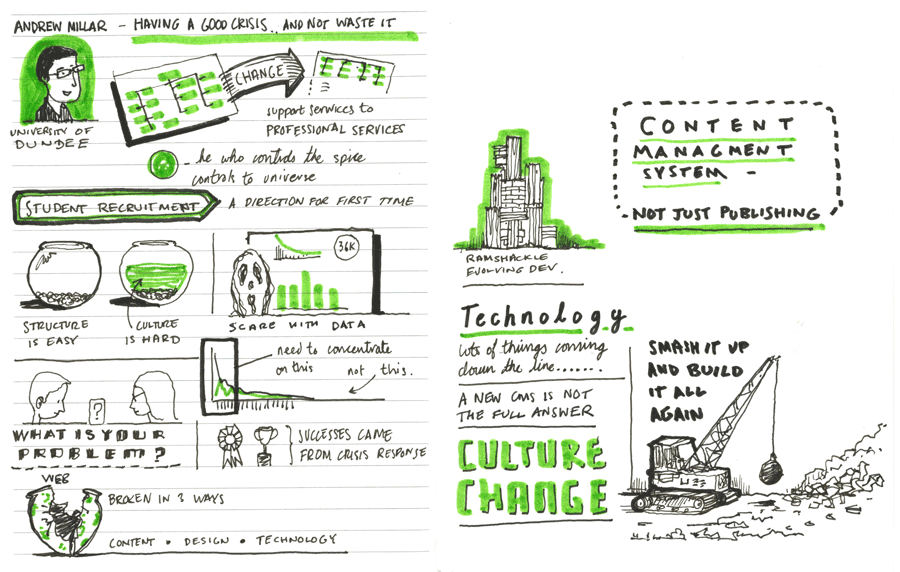 ANDREW MILLAR - HAVING A GOOD CRISIS.. AND NOT WASTE IT
CHANGE
UNIVERSITY OF
DUNDEE
support services to
PROFESSIONAL SERVICES
- he who controls the spice
controls to universe
STUDENT RECRUITMENT
A DIRECTION FOR FIRST TIME
STRUCTURE
IS EASY
CULTURE
IS HARD
36K
SCARE WITH DATA
need to concentrate
on this
not this.
?
WHAT IS YOUR
PROBLEM?
SUCCESSES CAME
FROM CRISIS RESPONSE
WEB
BROKEN IN 3 WAYS
CONTENT • DESIGN • TECHNOLOGY
CONTENT
MANAGMENT
SYSTEM -
- NOT JUST PUBLISHING
RAMSHACKLE
EVOLVING DEV.
Technology
lots of things coming
down the line.......
A NEW CMS IS NOT
THE FULL ANSWER
CULTURE
CHANGE
SMASH IT UP
AND BUILD
IT ALL
AGAIN